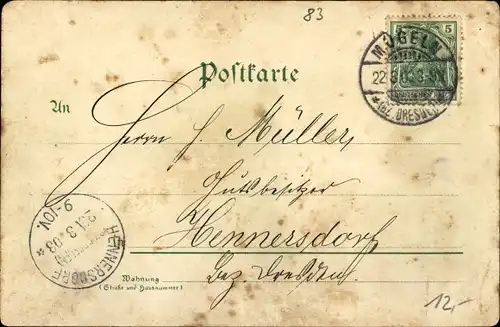 83
5
MÜGELN
22.3.03.
*(BZ. DRESDEN)
Postkarte
An
Herrn H. Müller,
Gutsbesitzer
Hennersdorf
Bez. Dresden.
HENNERSDORF
23.3.03
9-10V.
Wohnung
(Straße und Hausnummer)
12,-